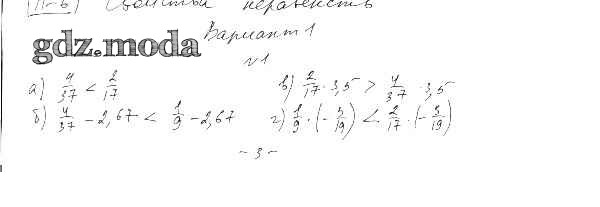 П-6) Свойства неравенств
Вариант 1
gdz.moda
№1
а) 4/37 < 2/17
в) 2/17 · 3,5 > 4/37 · 3,5
б) 4/37 - 2,67 < 1/9 - 2,67
г) 1/9 · (-3/19) < 2/17 · (-3/19)
- 3 -